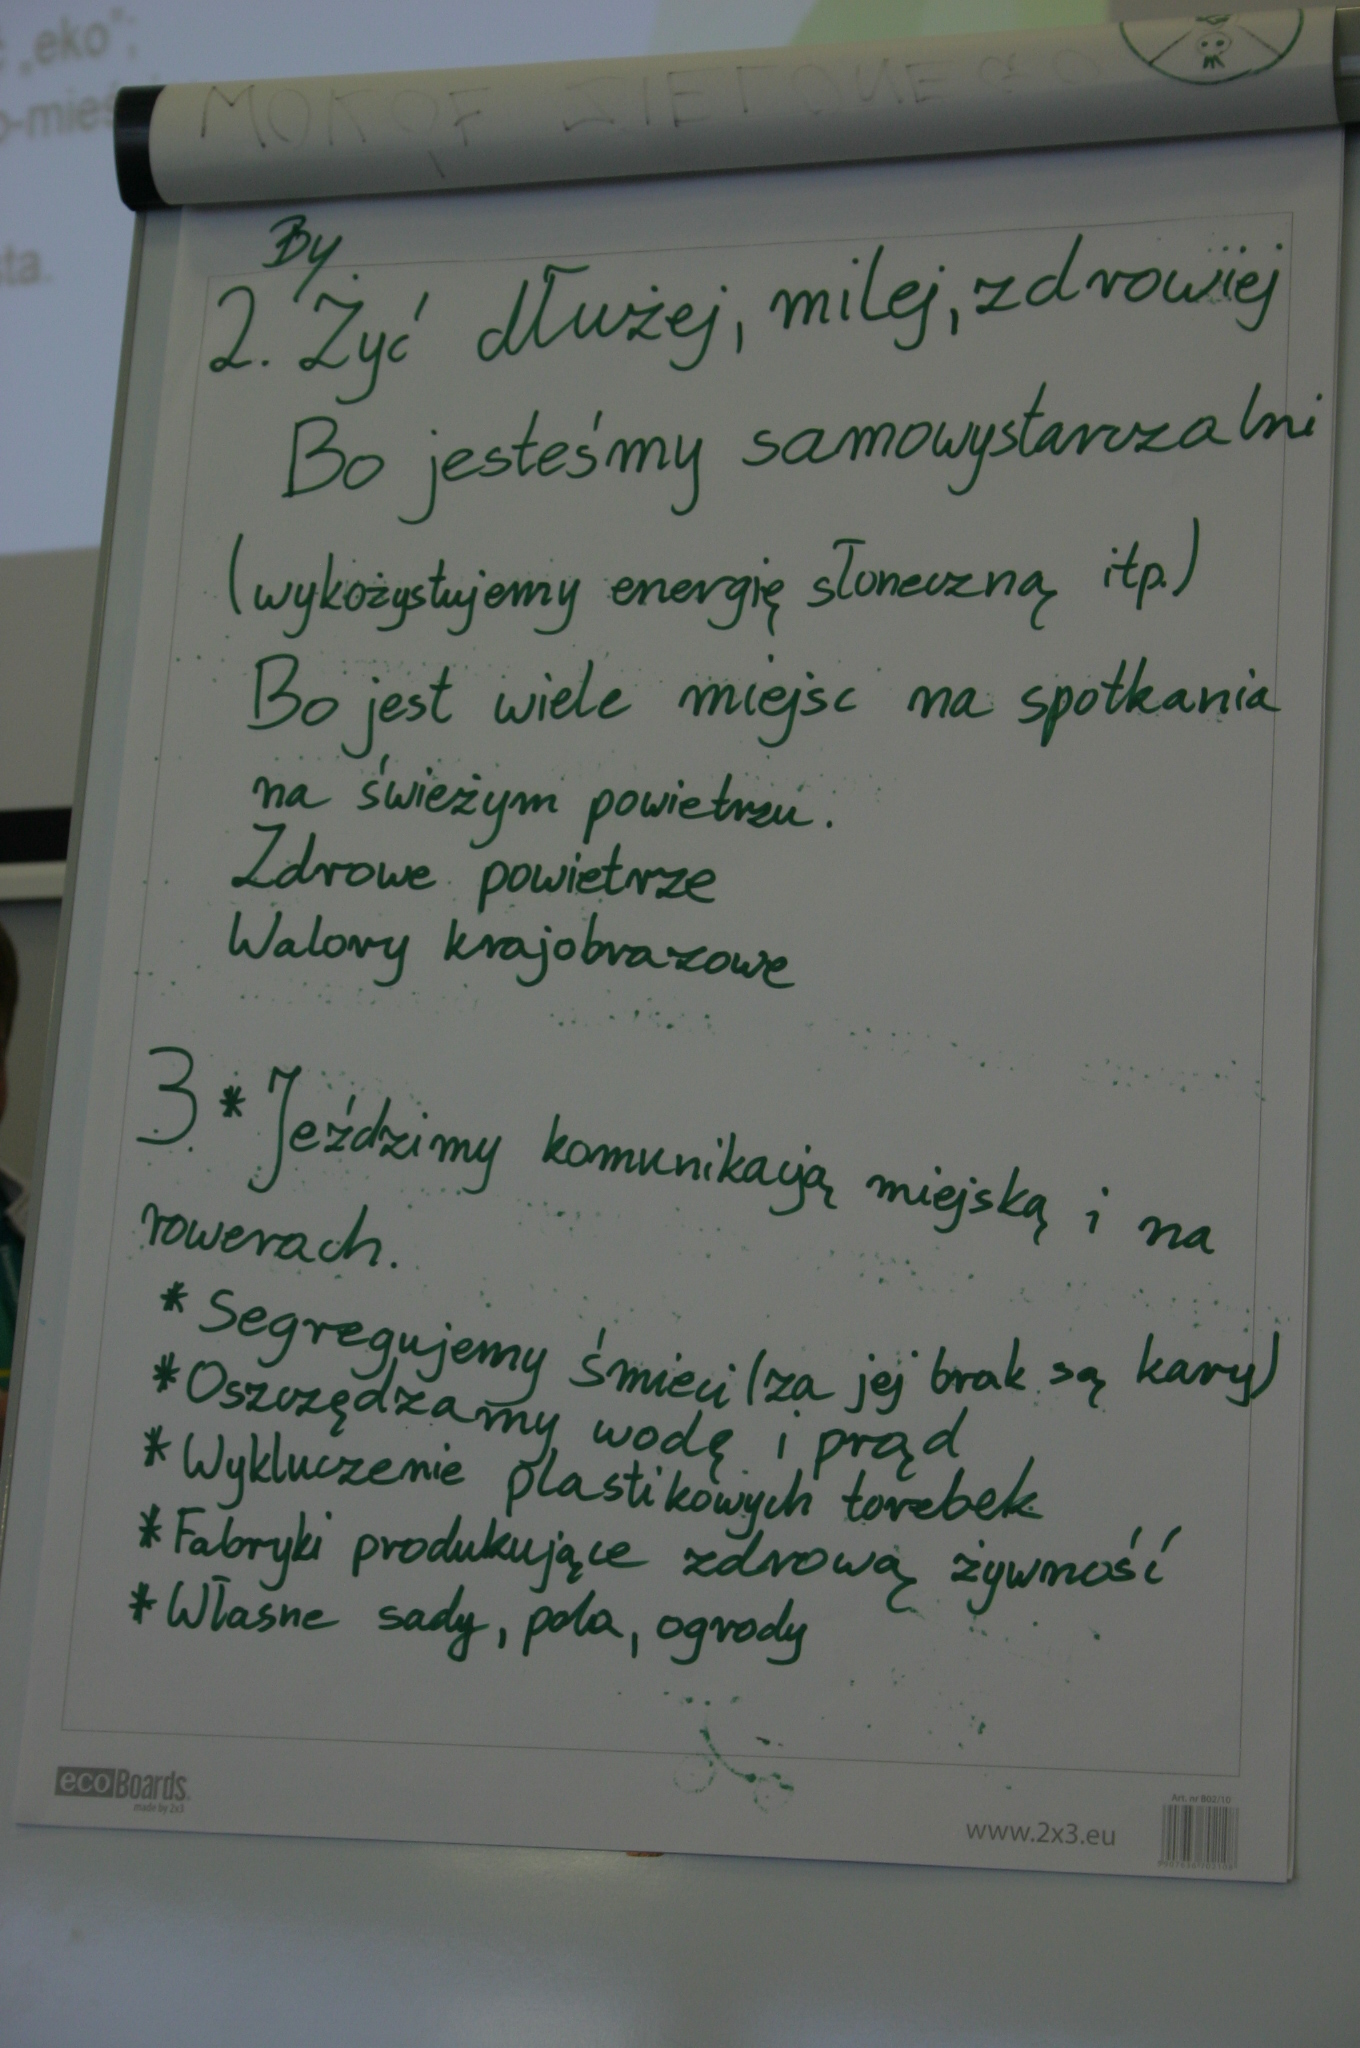 „eko";
By
2. Żyć dłużej, milej, zdrowiej
Bo jesteśmy samowystarczalni
(wykożystujemy energię słoneczną itp.)
Bo jest wiele miejsc na spotkania
na świeżym powietrzu.
Zdrowe powietrze
Walory krajobrazowe
3 * Jeździmy komunikacją miejską i na
rowerach.
* Segregujemy śmieci (za jej brak są kary)
* Oszczędzamy wodę i prąd
* Wykluczenie plastikowych torebek
* Fabryki produkujące zdrową żywność
* Własne sady, pola, ogrody
ecoBoards
made by 2x3
www.2x3.eu
Art. nr 802/10